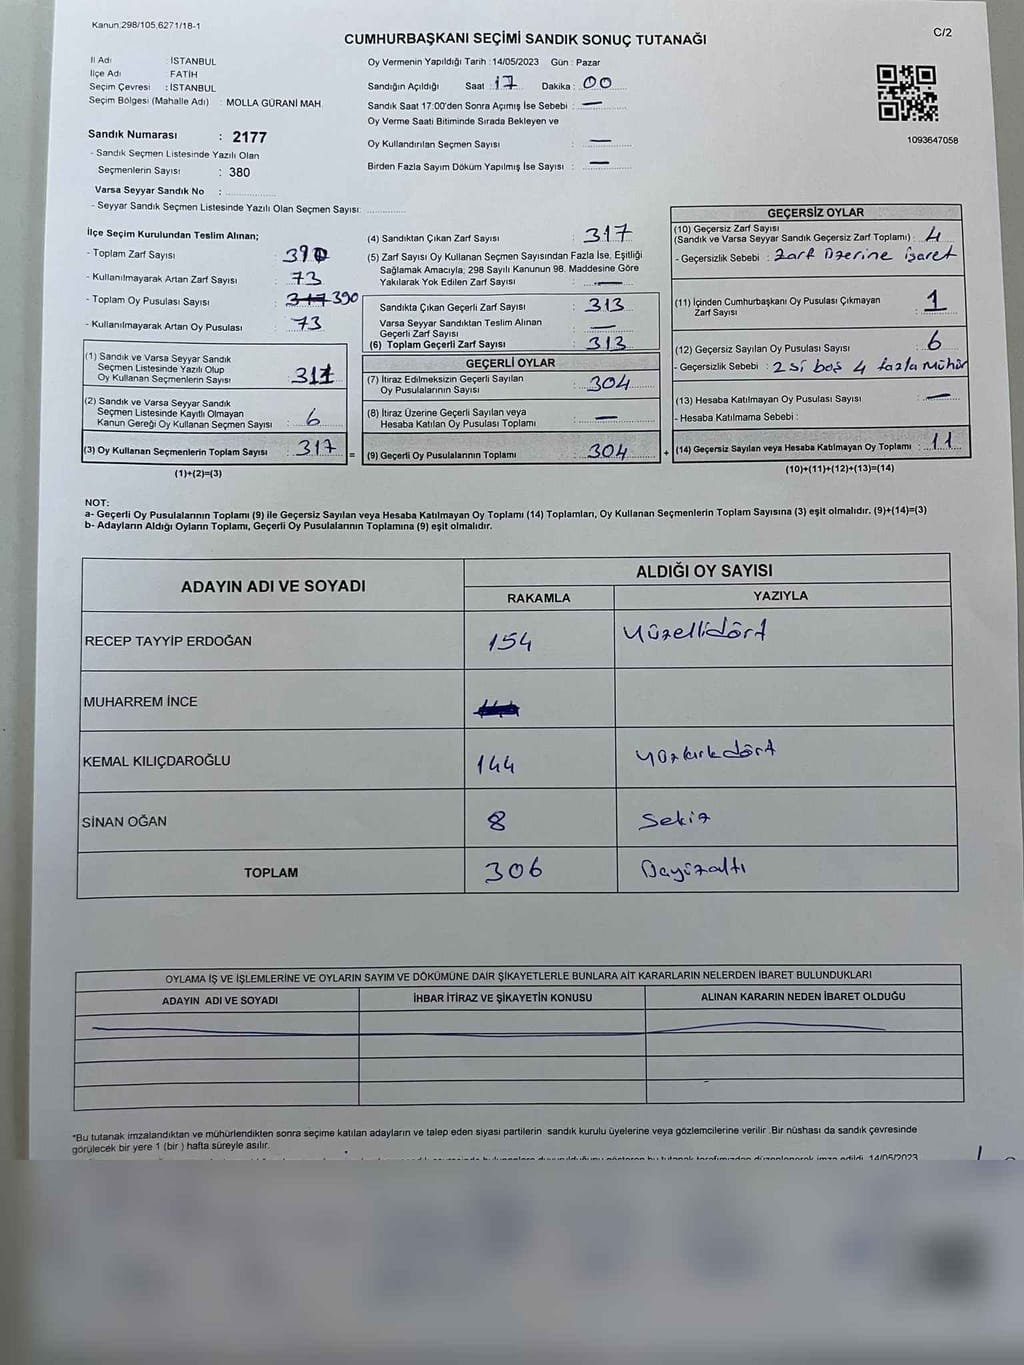 Kanun:298/105,6271/18-1
C/2
CUMHURBAŞKANI SEÇİMİ SANDIK SONUÇ TUTANAĞI
İl Adı : İSTANBUL
İlçe Adı : FATİH
Seçim Çevresi : İSTANBUL
Seçim Bölgesi (Mahalle Adı) : MOLLA GÜRANİ MAH.
Sandık Numarası : 2177
- Sandık Seçmen Listesinde Yazılı Olan
Seçmenlerin Sayısı : 380
Varsa Seyyar Sandık No :
- Seyyar Sandık Seçmen Listesinde Yazılı Olan Seçmen Sayısı:
Oy Vermenin Yapıldığı Tarih : 14/05/2023 Gün : Pazar
Sandığın Açıldığı Saat : 17 Dakika : 00
Sandık Saat 17:00'den Sonra Açımış İse Sebebi : —
Oy Verme Saati Bitiminde Sırada Bekleyen ve
Oy Kullandırılan Seçmen Sayısı : —
Birden Fazla Sayım Döküm Yapılmış İse Sayısı : —
1093647058
İlçe Seçim Kurulundan Teslim Alınan;
- Toplam Zarf Sayısı : 390
- Kullanılmayarak Artan Zarf Sayısı : 73
- Toplam Oy Pusulası Sayısı : 317 390
- Kullanılmayarak Artan Oy Pusulası : 73
(1) Sandık ve Varsa Seyyar Sandık
Seçmen Listesinde Yazılı Olup
Oy Kullanan Seçmenlerin Sayısı 311
(2) Sandık ve Varsa Seyyar Sandık
Seçmen Listesinde Kayıtlı Olmayan
Kanun Gereği Oy Kullanan Seçmen Sayısı : 6
(3) Oy Kullanan Seçmenlerin Toplam Sayısı : 317
(1)+(2)=(3)
=
(4) Sandıktan Çıkan Zarf Sayısı : 317
(5) Zarf Sayısı Oy Kullanan Seçmen Sayısından Fazla İse, Eşitliği
Sağlamak Amacıyla; 298 Sayılı Kanunun 98. Maddesine Göre
Yakılarak Yok Edilen Zarf Sayısı : —
Sandıkta Çıkan Geçerli Zarf Sayısı : 313
Varsa Seyyar Sandıktan Teslim Alınan
Geçerli Zarf Sayısı : —
(6) Toplam Geçerli Zarf Sayısı : 313
GEÇERLİ OYLAR
(7) İtiraz Edilmeksizin Geçerli Sayılan
Oy Pusulalarının Sayısı : 304
(8) İtiraz Üzerine Geçerli Sayılan veya
Hesaba Katılan Oy Pusulası Toplamı : —
(9) Geçerli Oy Pusulalarının Toplamı : 304
+
GEÇERSİZ OYLAR
(10) Geçersiz Zarf Sayısı
(Sandık ve Varsa Seyyar Sandık Geçersiz Zarf Toplamı) : 4
- Geçersizlik Sebebi : Zarf Üzerine işaret
(11) İçinden Cumhurbaşkanı Oy Pusulası Çıkmayan
Zarf Sayısı : 1
(12) Geçersiz Sayılan Oy Pusulası Sayısı : 6
- Geçersizlik Sebebi : 2 si boş 4 fazla mühür
(13) Hesaba Katılmayan Oy Pusulası Sayısı : —
- Hesaba Katılmama Sebebi :
(14) Geçersiz Sayılan veya Hesaba Katılmayan Oy Toplamı : 11
(10)+(11)+(12)+(13)=(14)
NOT:
a- Geçerli Oy Pusulalarının Toplamı (9) ile Geçersiz Sayılan veya Hesaba Katılmayan Oy Toplamı (14) Toplamları, Oy Kullanan Seçmenlerin Toplam Sayısına (3) eşit olmalıdır. (9)+(14)=(3)
b- Adayların Aldığı Oyların Toplamı, Geçerli Oy Pusulalarının Toplamına (9) eşit olmalıdır.
ADAYIN ADI VE SOYADI
ALDIĞI OY SAYISI
RAKAMLA
YAZIYLA
RECEP TAYYİP ERDOĞAN 154 Yüzellidört
MUHARREM İNCE
KEMAL KILIÇDAROĞLU 144 yüzkırkdört
SİNAN OĞAN 8 Sekiz
TOPLAM 306 Üçyüzaltı
OYLAMA İŞ VE İŞLEMLERİNE VE OYLARIN SAYIM VE DÖKÜMÜNE DAİR ŞİKAYETLERLE BUNLARA AİT KARARLARIN NELERDEN İBARET BULUNDUKLARI
ADAYIN ADI VE SOYADI
İHBAR İTİRAZ VE ŞİKAYETİN KONUSU
ALINAN KARARIN NEDEN İBARET OLDUĞU
*Bu tutanak imzalandıktan ve mühürlendikten sonra seçime katılan adayların ve talep eden siyasi partilerin sandık kurulu üyelerine veya gözlemcilerine verilir .Bir nüshası da sandık çevresinde
görülecek bir yere 1 (bir ) hafta süreyle asılır.
14/05/2023